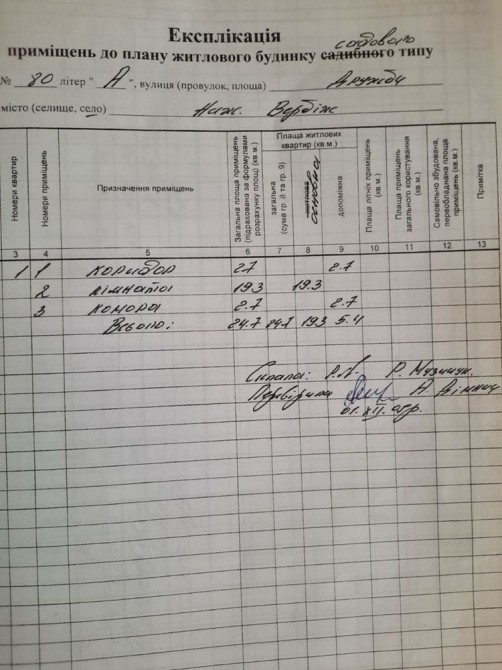 Експлікація
садового
приміщень до плану житлового будинку садибного типу
№ 80 літер " А ", вулиця (провулок, площа) Дружби
місто (селище, село) Ниж. Вербіж
Номери квартир
Номери приміщень
Призначення приміщень
Загальна площа приміщень (підрахована за формулами розрахунку площ) (кв.м.)
Площа житлових квартир (кв.м.)
загальна (сума гр. 8 та гр. 9)
житлова основна
допоміжна
Площа літніх приміщень (кв.м.)
Площа приміщень загального користування (кв.м.)
Самовільно збудована, переобладнана площа приміщень (кв.м.)
Примітка
3 4 5 6 7 8 9 10 11 12 13
1 1 коридор 2.7 2.7
2 кімната 19.3 19.3
3 комора 2.7 2.7
Всього: 24.7 24.7 19.3 5.4
Склала: Р. Мизичук
Перевірила А.
01. XII.